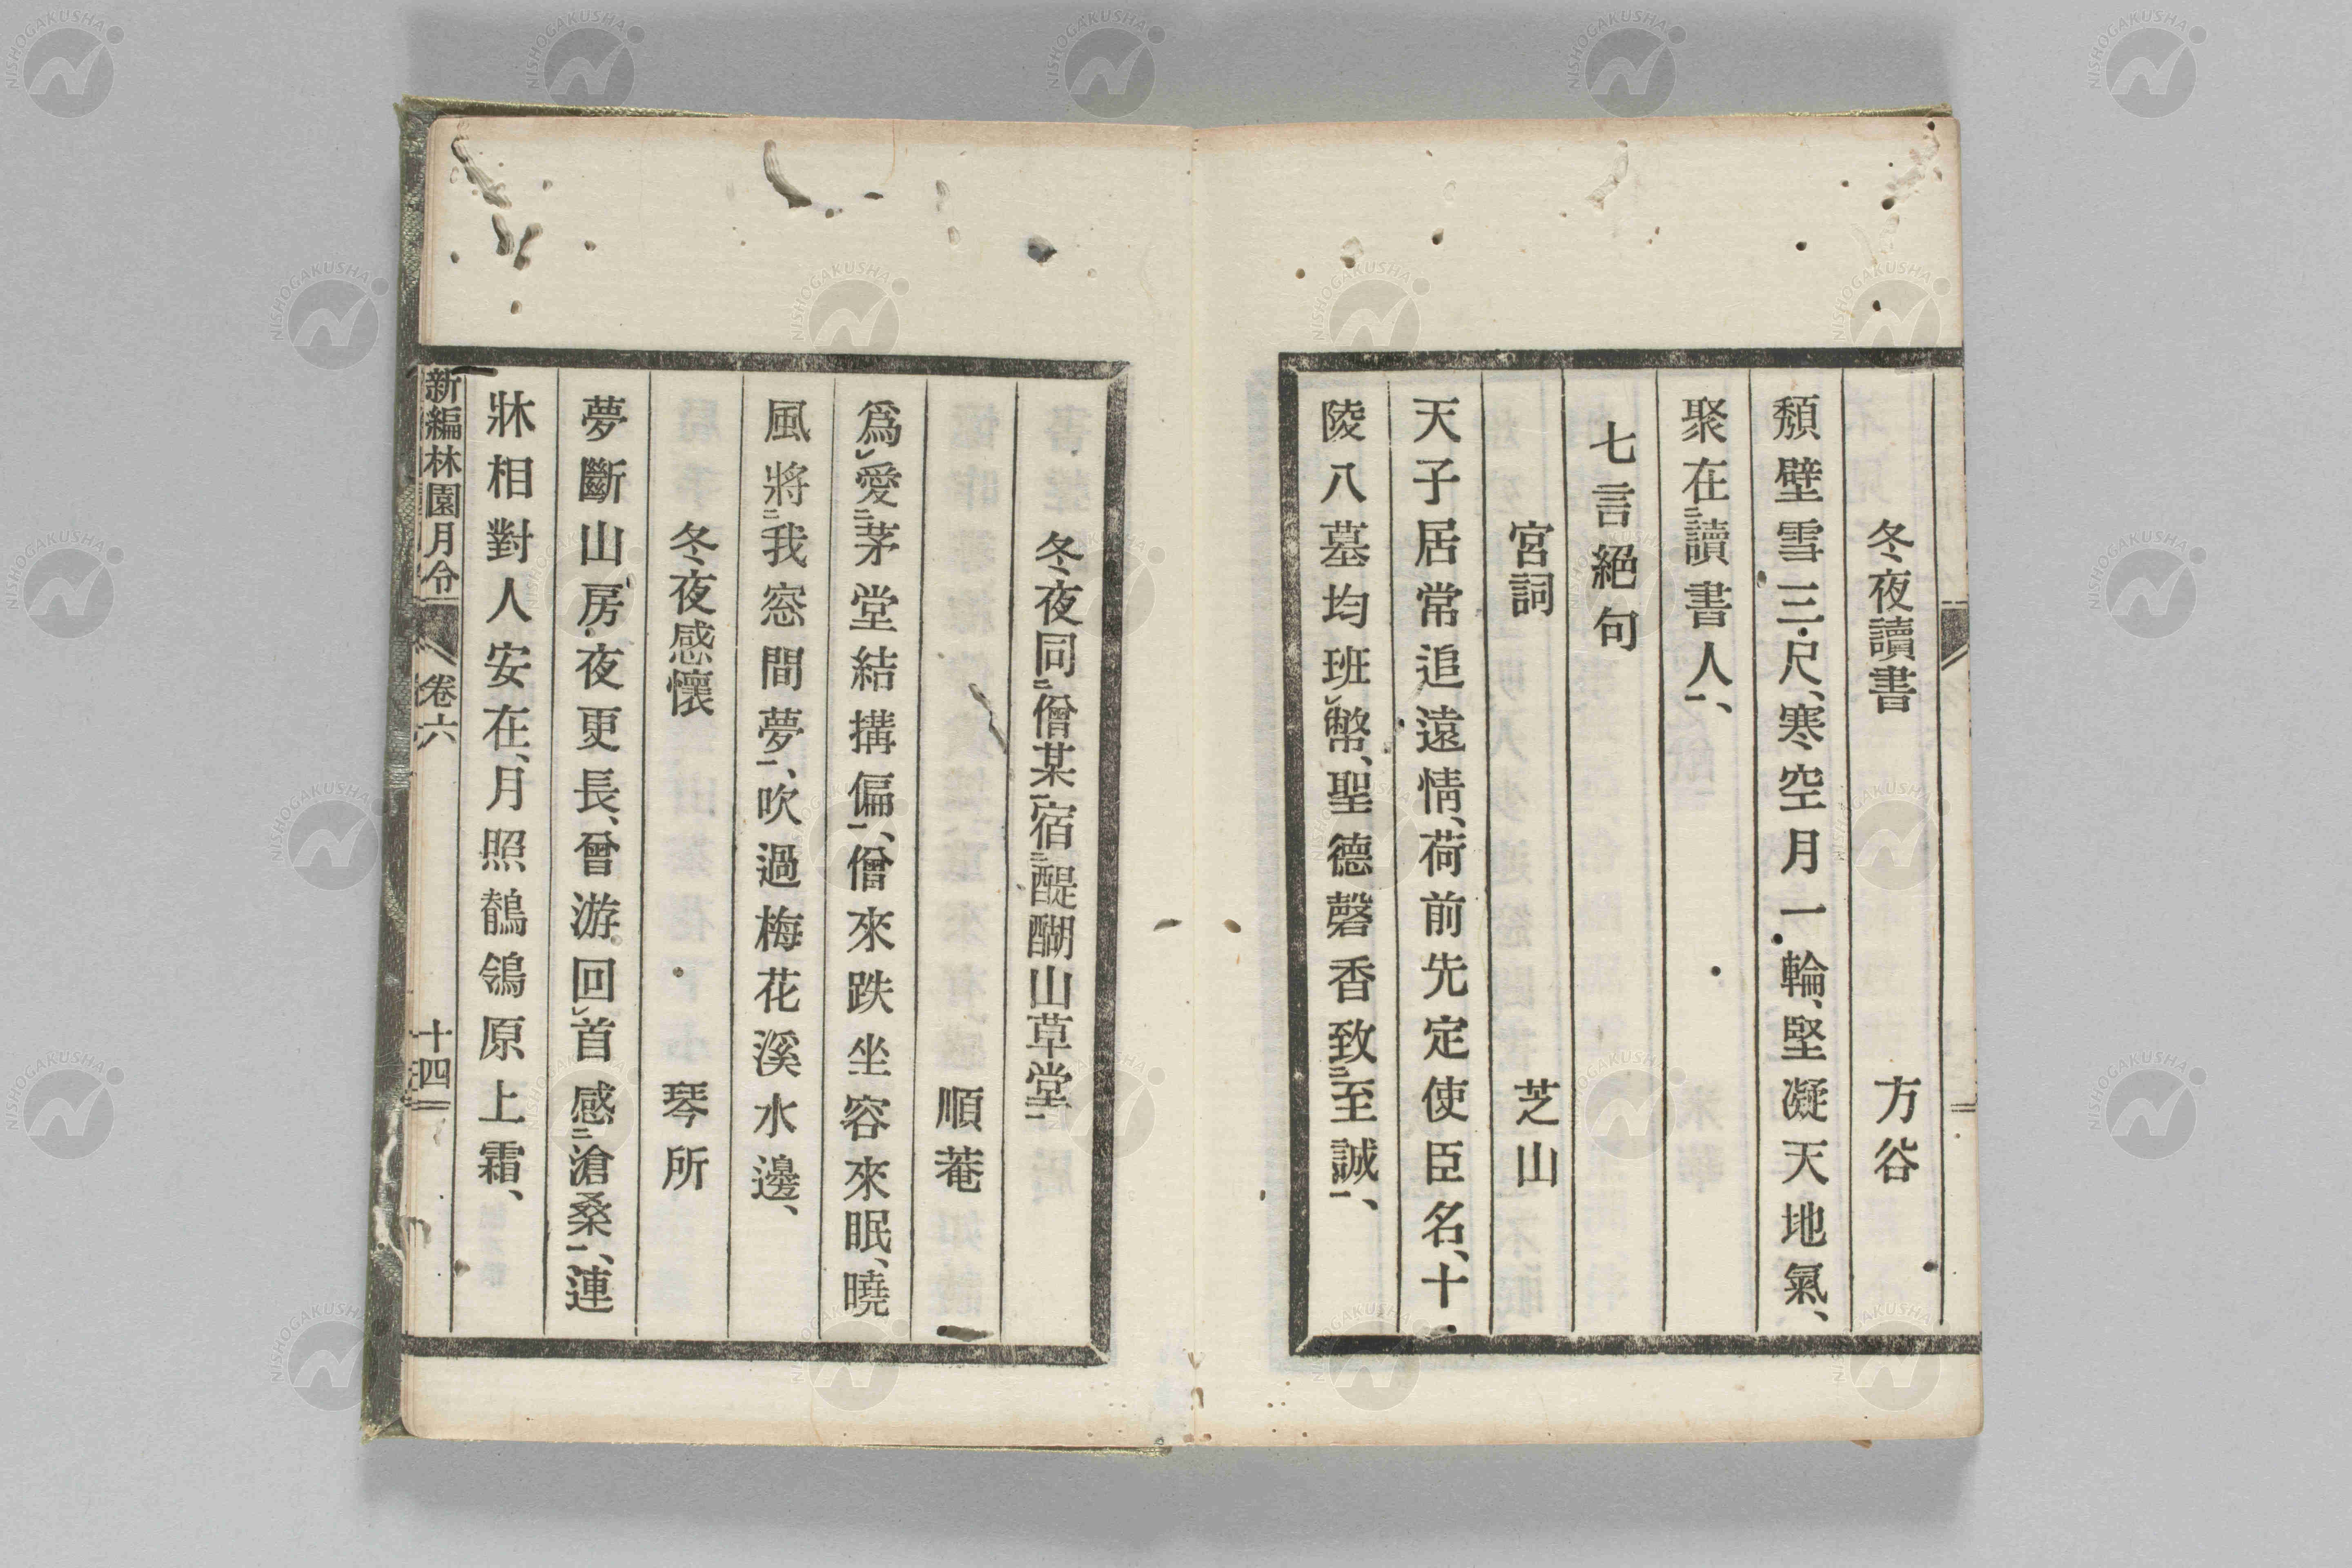 冬夜讀書 方谷
頽壁雪三尺、寒空月一輪、堅凝天地氣、
聚在讀書人、
七言絕句
宮詞 芝山
天子居常追遠情、荷前先定使臣名、十
陵八墓均班幣、聖德磬香致至誠、
冬夜同僧某宿醍醐山草堂
順菴
爲愛茅堂結搆偏、僧來跌坐客來眠、曉
風將我窓間夢、吹過梅花溪水邊、
冬夜感懷 琴所
夢斷山房夜更長、曾游回首感滄桑、連
牀相對人安在、月照鶺鴒原上霜、
新編林園月令 卷六 十四
NISHOGAKUSHA